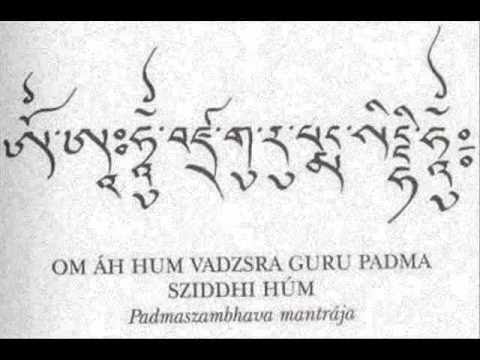 ཨོཾ་ཨཱཿཧཱུྃ་བཛྲ་གུ་རུ་པདྨ་སིདྡྷི་ཧཱུྃ༔
OM ÁH HUM VADZSRA GURU PADMA
SZIDDHI HÚM
Padmaszambhava mantrája